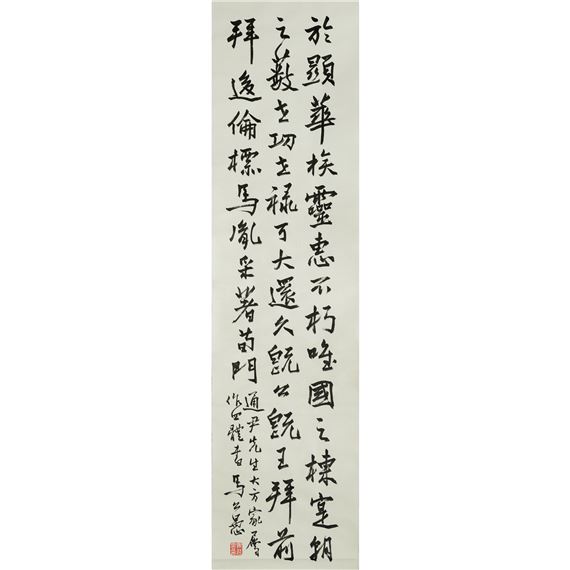 於顯華族靈惠不朽唯國之棟寔朝
之藪世功世祿可大還久既公既王拜前
拜後倫標馬胤采著荀門
通尹先生大方家屬
作四體書馬公愚